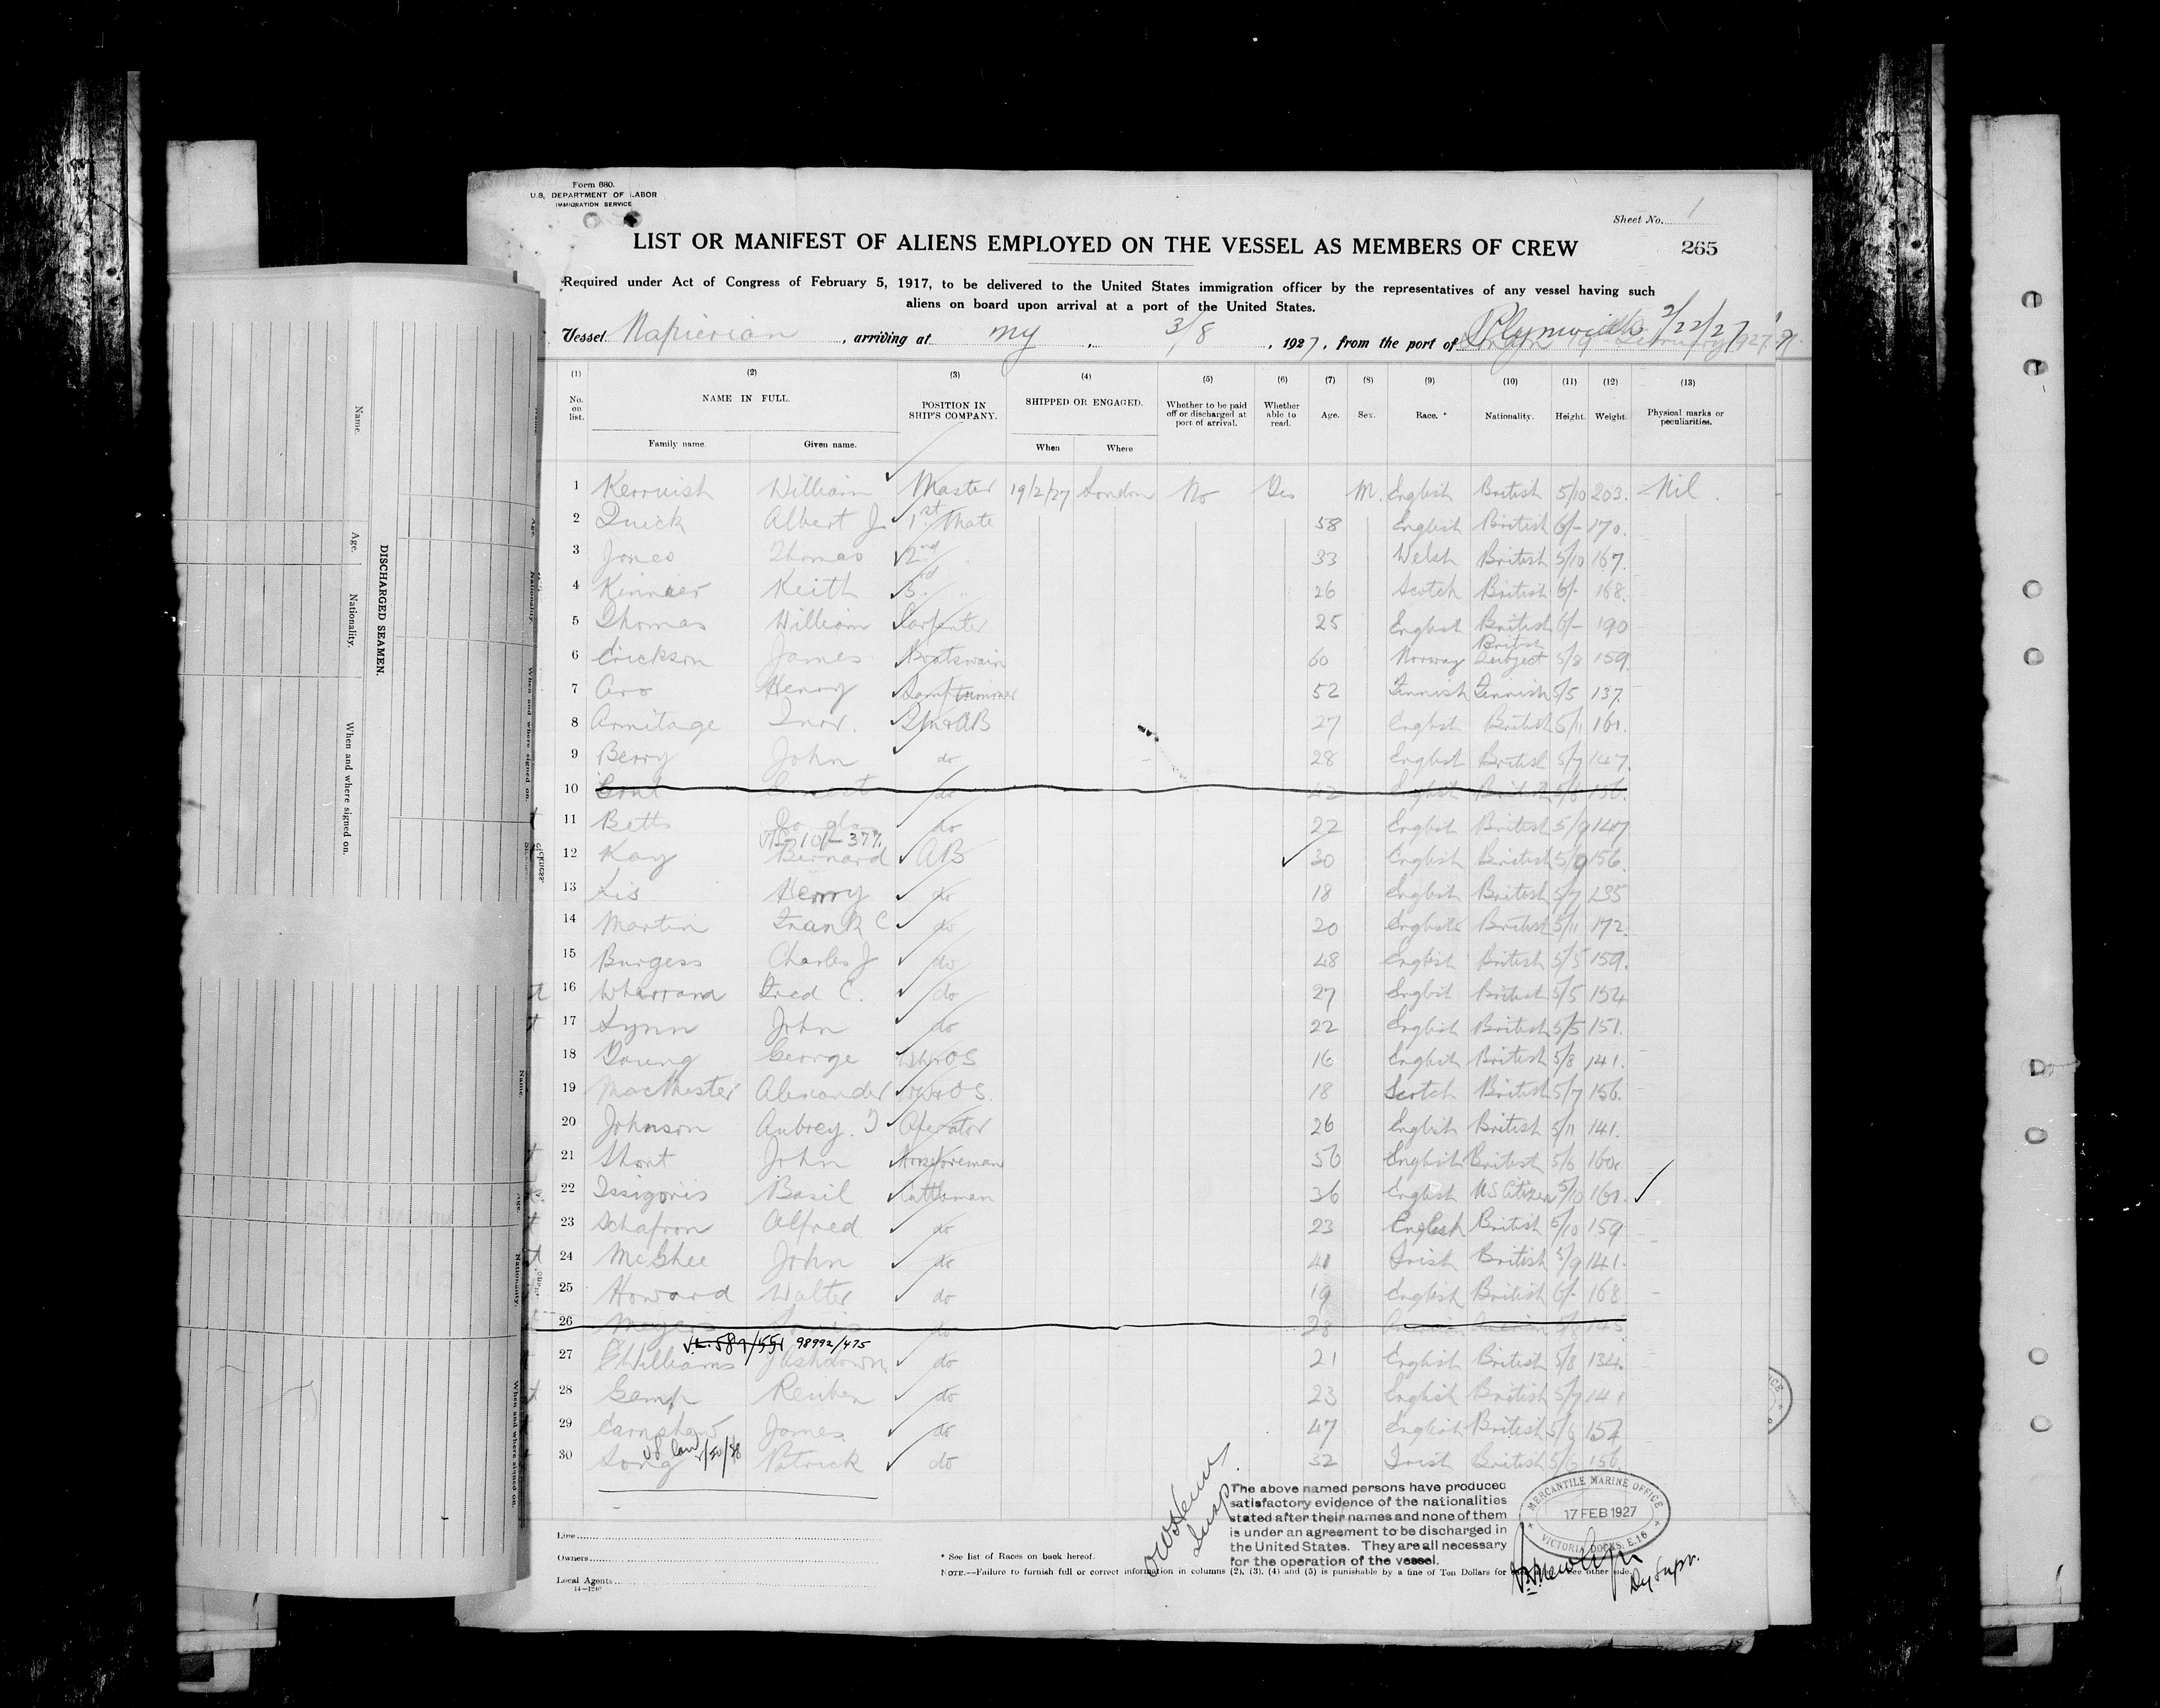 Form 680.
U.S. DEPARTMENT OF LABOR
IMMIGRATION SERVICE
Sheet No. 1
LIST OR MANIFEST OF ALIENS EMPLOYED ON THE VESSEL AS MEMBERS OF CREW
265
Required under Act of Congress of February 5, 1917, to be delivered to the United States immigration officer by the representatives of any vessel having such
aliens on board upon arrival at a port of the United States.
Vessel Napierian, arriving at ny, 3/8, 1927, from the port of Plymouth 2/22/27
(1) (2) (3) (4) (5) (6) (7) (8) (9) (10) (11) (12) (13)
No. on list. NAME IN FULL. POSITION IN SHIP'S COMPANY. SHIPPED OR ENGAGED. Whether to be paid off or discharged at port of arrival. Whether able to read. Age. Sex. Race. * Nationality. Height. Weight. Physical marks or peculiarities.
Family name. Given name. When Where
1 Kerruish William Master 19/2/27 London No Yes M. English British 5/10 203. Nil.
2 Quick Albert J 1st Mate 58 English British 6/- 170.
3 Jones Thomas 2nd 33 Welsh British 5/10 167.
4 Kinnier Keith 3rd 26 Scotch British 6/- 168.
5 Thomas William Carpenter 25 English British 6/- 190
6 Erickson James Boatswain 60 Norway British Subject 5/8 159.
7 Aro Henry Lamptrimmer 52 Finnish Finnish 5/5 137.
8 Armitage 27 English British 5/11 161.
9 Berry John do 28 English British 5/7 147.
10 do 42 English British 5/6 156.
11 Betts do 22 English British 5/9 147
12 Kay Bernard AB 30 English British 5/9 156.
13 Lis Henry do 18 English British 5/7 135
14 Martin Frank C do 20 English British 5/11 172.
15 Burgess Charles J do 48 English British 5/5 159.
16 Wharrand Fred C. do 27 English British 5/5 154
17 Lynn John do 22 English British 5/5 151.
18 Young George OS 16 English British 5/8 141.
19 MacMester Alexander OS. 18 Scotch British 5/7 156.
20 Johnson Aubrey. Operator 26 English British 5/11 141.
21 Short John Horseforeman 56 English British 5/6 160.
22 Issigonis Basil Cattleman 36 English US Citizen 5/10 161.
23 Schafron Alfred do 23 English British 5/10 159
24 McGhee John do 41 Irish British 5/9 141.
25 Howard Walter do 19 English British 6/- 168
26 Meyers Louis do 28 American American 5/8 145
98992/475
27 Williams Jashdown do 21 English British 5/8 134.
28 Gemp Reuben do 23 English British 5/7 141
29 Earnshaw James. do 47 English British 5/6 154
30 Long Patrick do 32 Irish British 5/6 156.
The above named persons have produced
satisfactory evidence of the nationalities
stated after their names and none of them
is under an agreement to be discharged in
the United States. They are all necessary
for the operation of the vessel.
MERCANTILE MARINE OFFICE
17 FEB 1927
VICTORIA DOCKS, E.16
Dy Supr.
Line
Owners
Local Agents
14—1240
* See list of Races on back hereof.
NOTE.—Failure to furnish full or correct information in columns (2), (3), (4) and (5) is punishable by a fine of Ten Dollars for
see other side.
DISCHARGED SEAMEN.
Name.
Age.
Nationality.
When and where signed on.